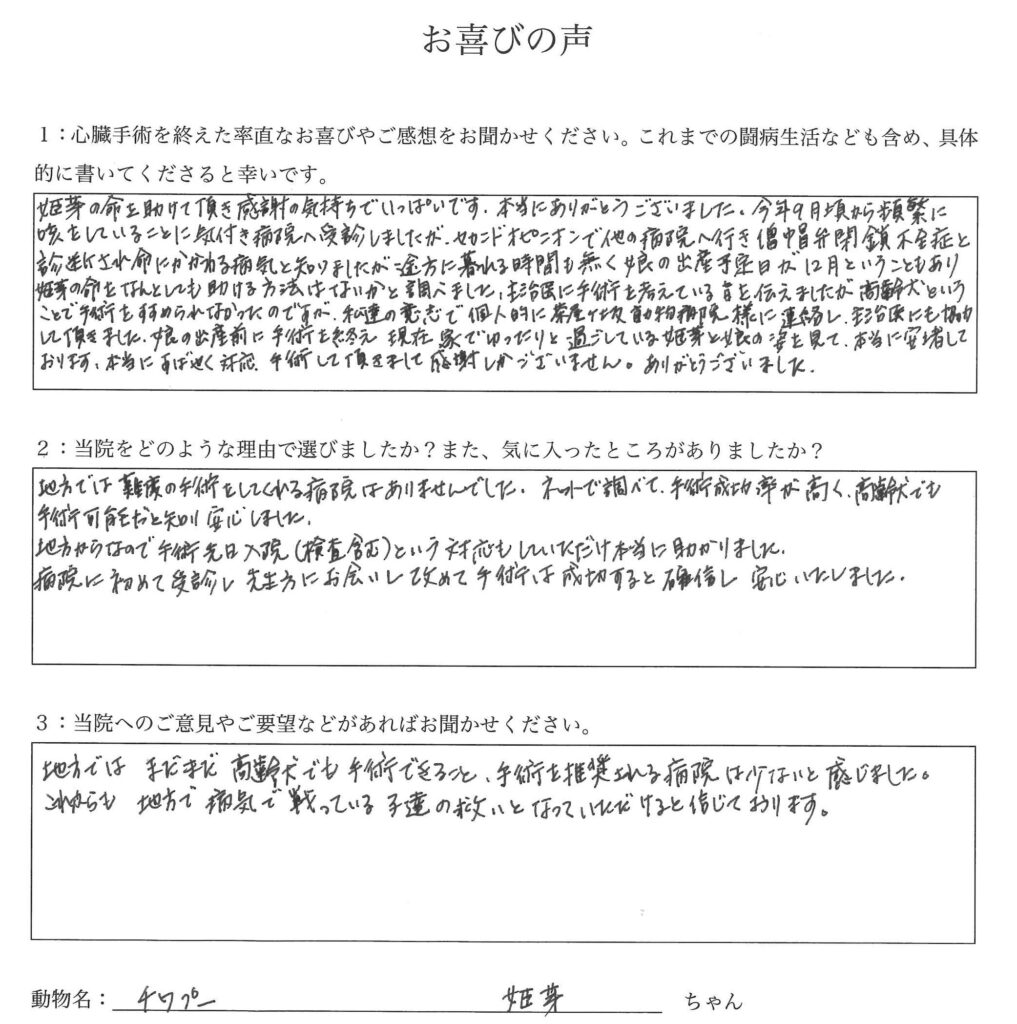 お喜びの声
1：心臓手術を終えた率直なお喜びやご感想をお聞かせください。これまでの闘病生活なども含め、具体
的に書いてくださると幸いです。
姫芽の命を助けて頂き感謝の気持ちでいっぱいです。本当にありがとうございました。今年9月頃から頻繁に
咳をしていることに気付き病院へ受診しましたが、セカンドオピニオンで他の病院へ行き僧帽弁閉鎖不全症と
診断され命にかかわる病気と知りましたが途方に暮れる時間も無く娘の出産予定日が12月ということもあり
姫芽の命をなんとしても助ける方法はないかと調べました。主治医に手術を考えている旨を伝えましたが高齢犬という
ことで手術をすすめられなかったのですが、私達の意志で個人的に茶屋ヶ坂動物病院様に連絡し、主治医にも協力
して頂きました。娘の出産前に手術を終え現在家でゆったりと過ごしている姫芽と娘の姿を見て、本当に安堵して
おります。本当にすばやく対応、手術して頂きまして感謝しかございません。ありがとうございました。
2：当院をどのような理由で選びましたか？また、気に入ったところがありましたか？
地方では難度の手術をしてくれる病院はありませんでした。ネットで調べて、手術成功率が高く、高齢犬でも
手術可能だと知り安心しました。
地方からなので手術先日入院(検査含む)という対応もしていただけ本当に助かりました。
病院に初めて受診し先生方にお会いして改めて手術は成功すると確信し安心いたしました。
3：当院へのご意見やご要望などがあればお聞かせください。
地方ではまだまだ高齢犬でも手術できること、手術を推奨される病院は少ないと感じました。
これからも地方で病気で戦っている子達の救いとなっていただけると信じております。
動物名：チワプー 姫芽 ちゃん